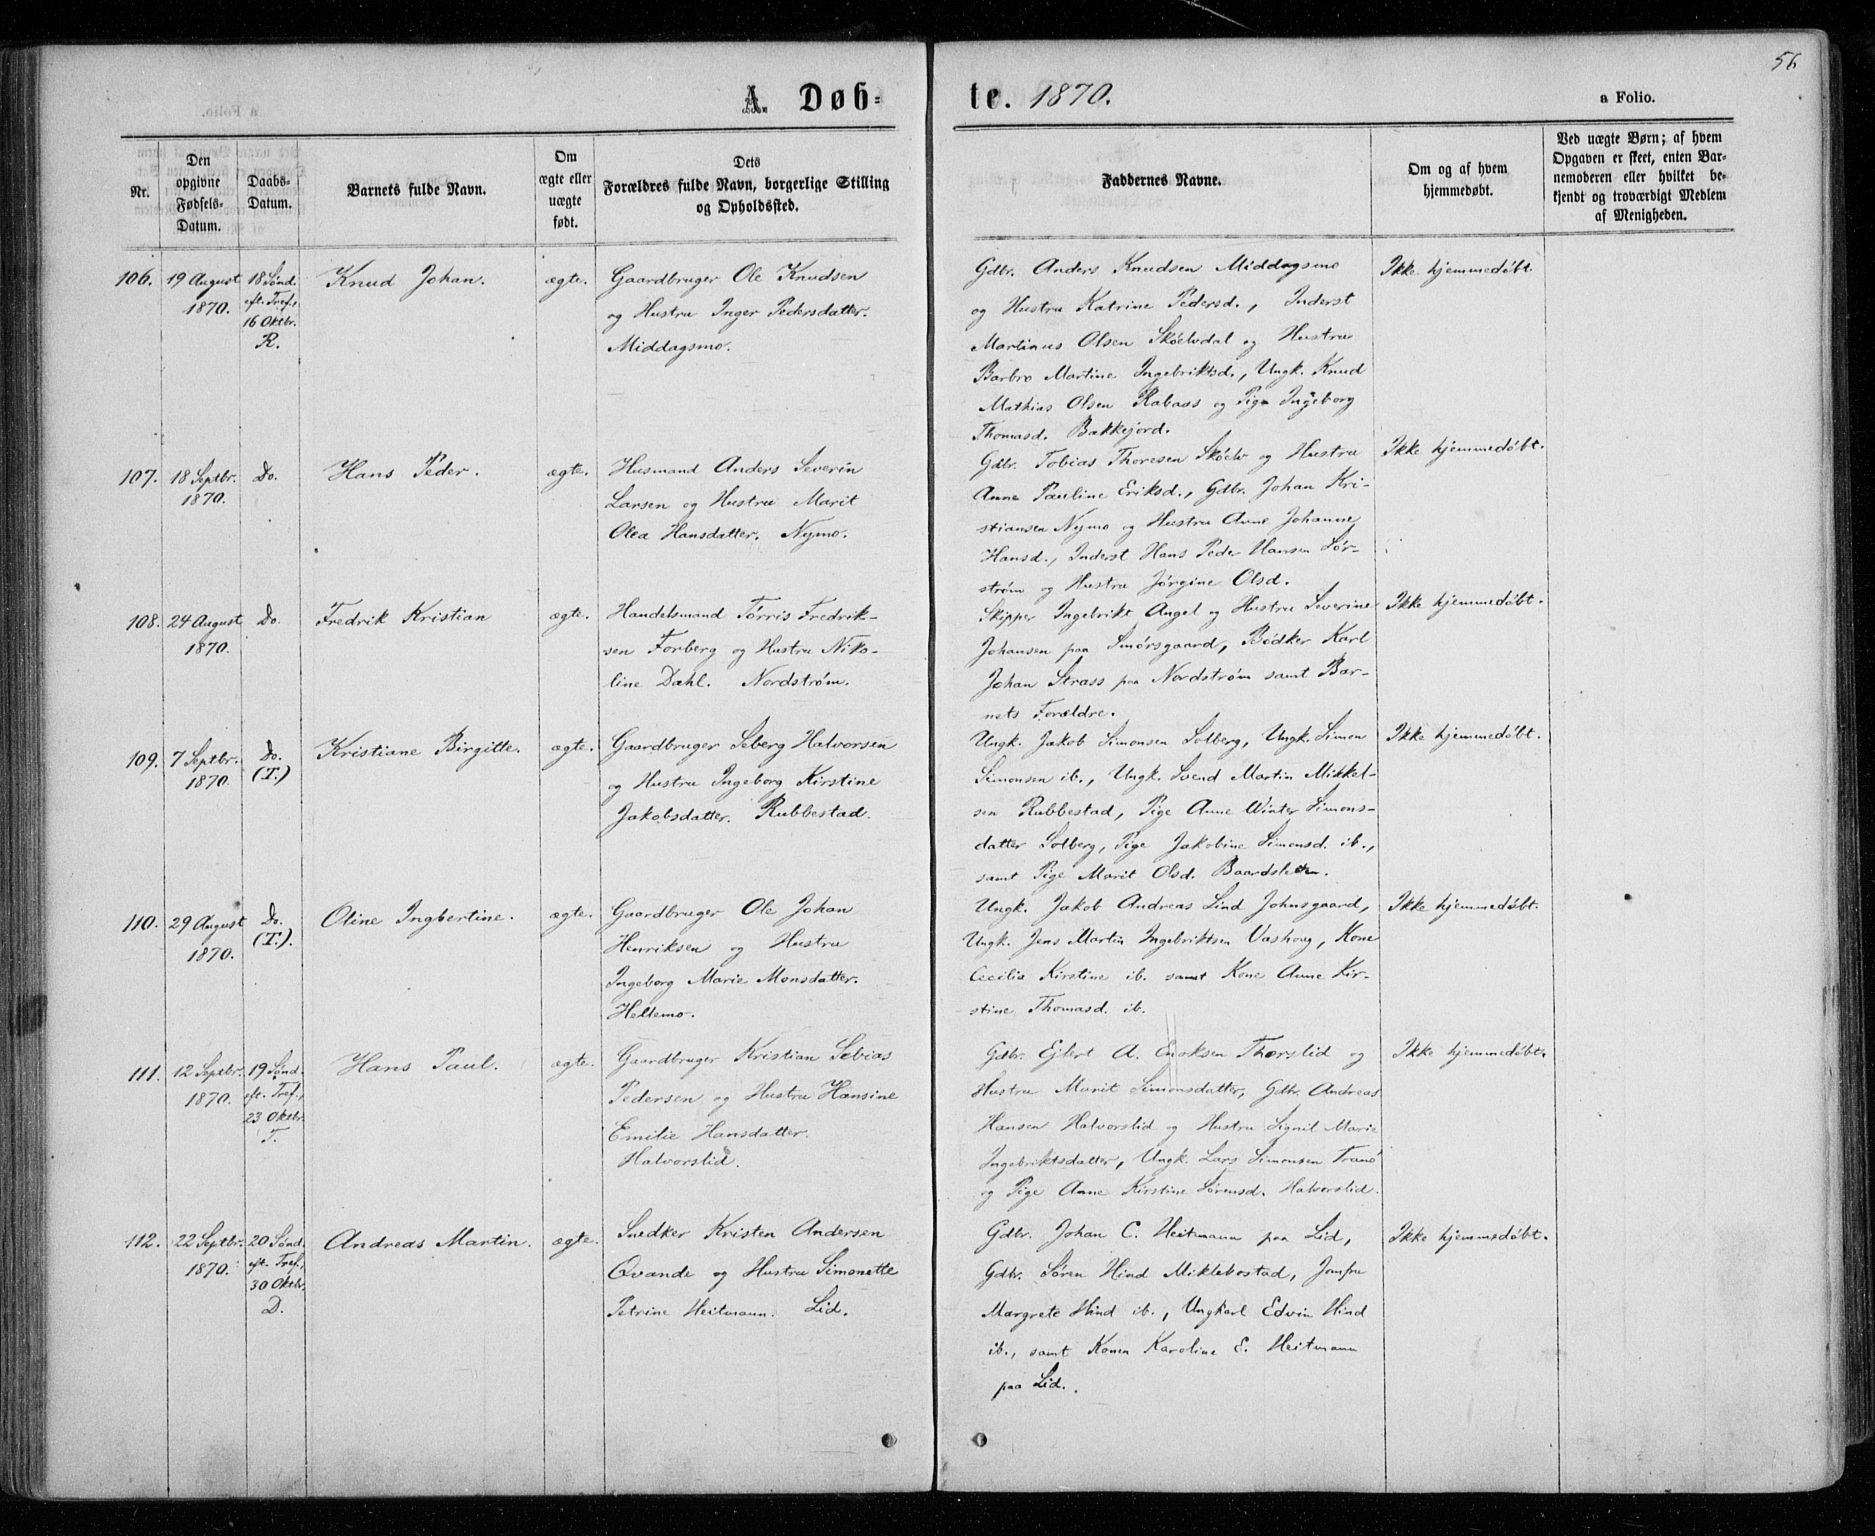 56
A. Døb-
te. 1870.
a Folio.
Nr.
Den
opgivne
Fødsels-
Datum.
Daabs-
Datum.
Barnets fulde Navn.
Om
ægte eller
uægte
født.
Dets
Forældres fulde Navn, borgerlige Stilling
og Opholdssted.
Faddernes Navne.
Om og af hvem
hjemmedøbt.
Ved uægte Børn; af hvem
Opgaven er skeet, enten Bar-
nemoderen eller hvilket be-
kjendt og troværdigt Medlem
af Menigheden.
106.
19 August
1870.
18 Sønd.
eft. Tref.,
16 Oktbr.
R.
Knud Johan.
ægte.
Gaardbruger Ole Knudsen
og Hustru Inger Pedersdatter.
Middagsmo.
Gdbr. Anders Knudsen Middagsmo
og Hustru Katrine Pedersd., Inderst
Martinus Olsen Skóelvdal og Hustru
Barbro Martine Ingebriktsd., Ungk. Knud
Mathias Olsen Rabaas og Pige Ingeborg
Thomasd. Bakkejord.
Ikke hjemmedøbt.
107.
18 Septbr.
1870.
Do.
Hans Peder.
ægte.
Husmand Anders Severin
Larsen og Hustru Marit
Olea Hansdatter. Nymo.
Gdbr. Tobias Thoresen Skóelv og Hustru
Anne Pauline Eriksd., Gdbr. Johan Kri-
stiansen Nymo og Hustru Anne Johanne
Hansd., Inderst Hans Peder Hansen Sør-
strøm og Hustru Jørgine Olsd.
Ikke hjemmedøbt.
108.
24 August
1870.
Do.
Fredrik Kristian
ægte.
Handelsmand Tørris Fredrik-
sen Forberg og Hustru Niko-
line Dahl. Nordstrøm.
Skipper Ingebrikt Angel og Hustru Severine
Johansen paa Smørsgaard, Bødker Karl
Johan Strass paa Nordstrøm samt Bar-
nets Forældre.
Ikke hjemmedøbt.
109.
7 Septbr.
1870.
Do.
(T.)
Kristiane Birgitte.
ægte.
Gaardbruger Seberg Halvorsen
og Hustru Ingeborg Kirstine
Jakobsdatter. Rubbestad.
Ungk. Jakob Simonsen Solberg, Ungk. Simon
Simonsen ib., Ungk. Svend Martin Mikkel-
sen Rubbestad, Pige Anne Winter Simons-
datter Solberg, Pige Jakobine Simonsd. ib.,
samt Pige Marit Olsd. Baardsleten.
Ikke hjemmedøbt.
110.
29 August
1870.
Do.
(T.).
Oline Ingbertine.
ægte.
Gaardbruger Ole Johan
Henriksen og Hustru
Ingeborg Marie Monsdatter.
Hellemo.
Ungk. Jakob Andreas Lind Johnsgaard,
Ungk. Jens Martin Ingebriktsen Vashaug, Kone
Cecilia Kirstine ib. samt Kone Anne Kir-
stine Thomasd. ib.
Ikke hjemmedøbt.
111.
12 Septbr.
1870.
19 Sønd.
eft. Tref.,
23 Oktbr.
T.
Hans Paul.
ægte.
Gaardbruger Kristian Sebias
Pedersen og Hustru Hansine
Emilie Hansdatter.
Halvorslid.
Gdbr. Ejlert A. Enoksen Thorslid og
Hustru Marit Simonsdatter, Gdbr. Andreas
Hansen Halvorslid og Hustru Signil Marie
Ingebriktsdatter, Ungk. Lars Simonsen Tranø
og Pige Anne Kirstine Sørensd. Halvorslid.
Ikke hjemmedøbt.
112.
22 Septbr.
1870.
20 Sønd.
eft. Tref.,
30 Oktbr.
D.
Andreas Martin.
ægte.
Snedker Kristen Andersen
Qvande og Hustru Simonette
Petrine Heitmann. Lid.
Gdbr. Johan C. Heitmann paa Lid,
Gdbr. Søren Hind Miklebostad, Jomfru
Margrete Hind ib., Ungkarl Edvin Hind
ib., samt Konen Karoline E. Heitmann
paa Lid.
Ikke hjemmedøbt.